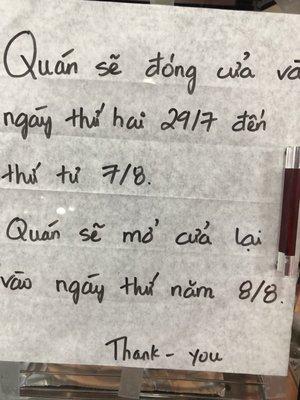 Quán sẽ đóng cửa và
ngáy thứ hai 29/7 đến
thứ tư 7/8.
Quán sẽ mở cửa lại
vào ngáy thứ năm 8/8.
Thank - you